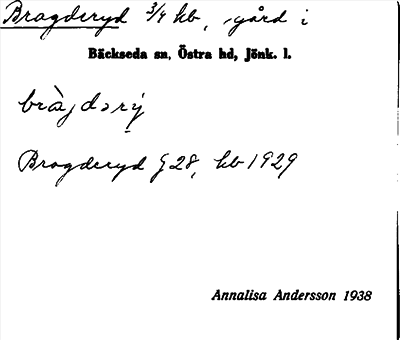 Bragderyd 3/4 hb, gård i
Bäckseda sn, Östra hd, Jönk. l.
bràgdərỳ
Bragderyd G 28, hb 1929
Annalisa Andersson 1938